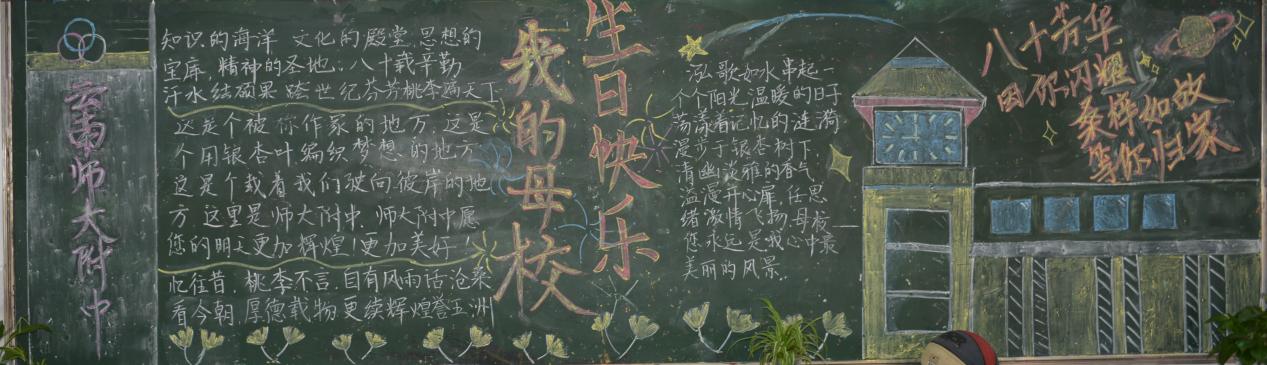 云南师大附中
知识的海洋 文化的殿堂 思想的
宝库, 精神的圣地, 八十载辛勤
汗水结硕果 跨世纪芬芳桃李满天下
这是个被你作家的地方, 这是
个用银杏叶编织梦想的地方
这是个载着我们驶向彼岸的地
方 这里是师大附中, 师大附中愿
您的明天更加辉煌!更加美好!
忆往昔, 桃李不言, 自有风雨话沧桑
看今朝, 厚德载物 更续辉煌誉五洲
我的母校
生日快乐
泓歌如水串起一
个个阳光温暖的日子
荡漾着记忆的涟漪
漫步于银杏树下,
清幽淡雅的香气
溢漫开心扉, 任思
绪激情飞扬, 母校
您永远是我心中最
美丽的风景.
八十芳华
因你闪耀
桑梓如故
等你归家